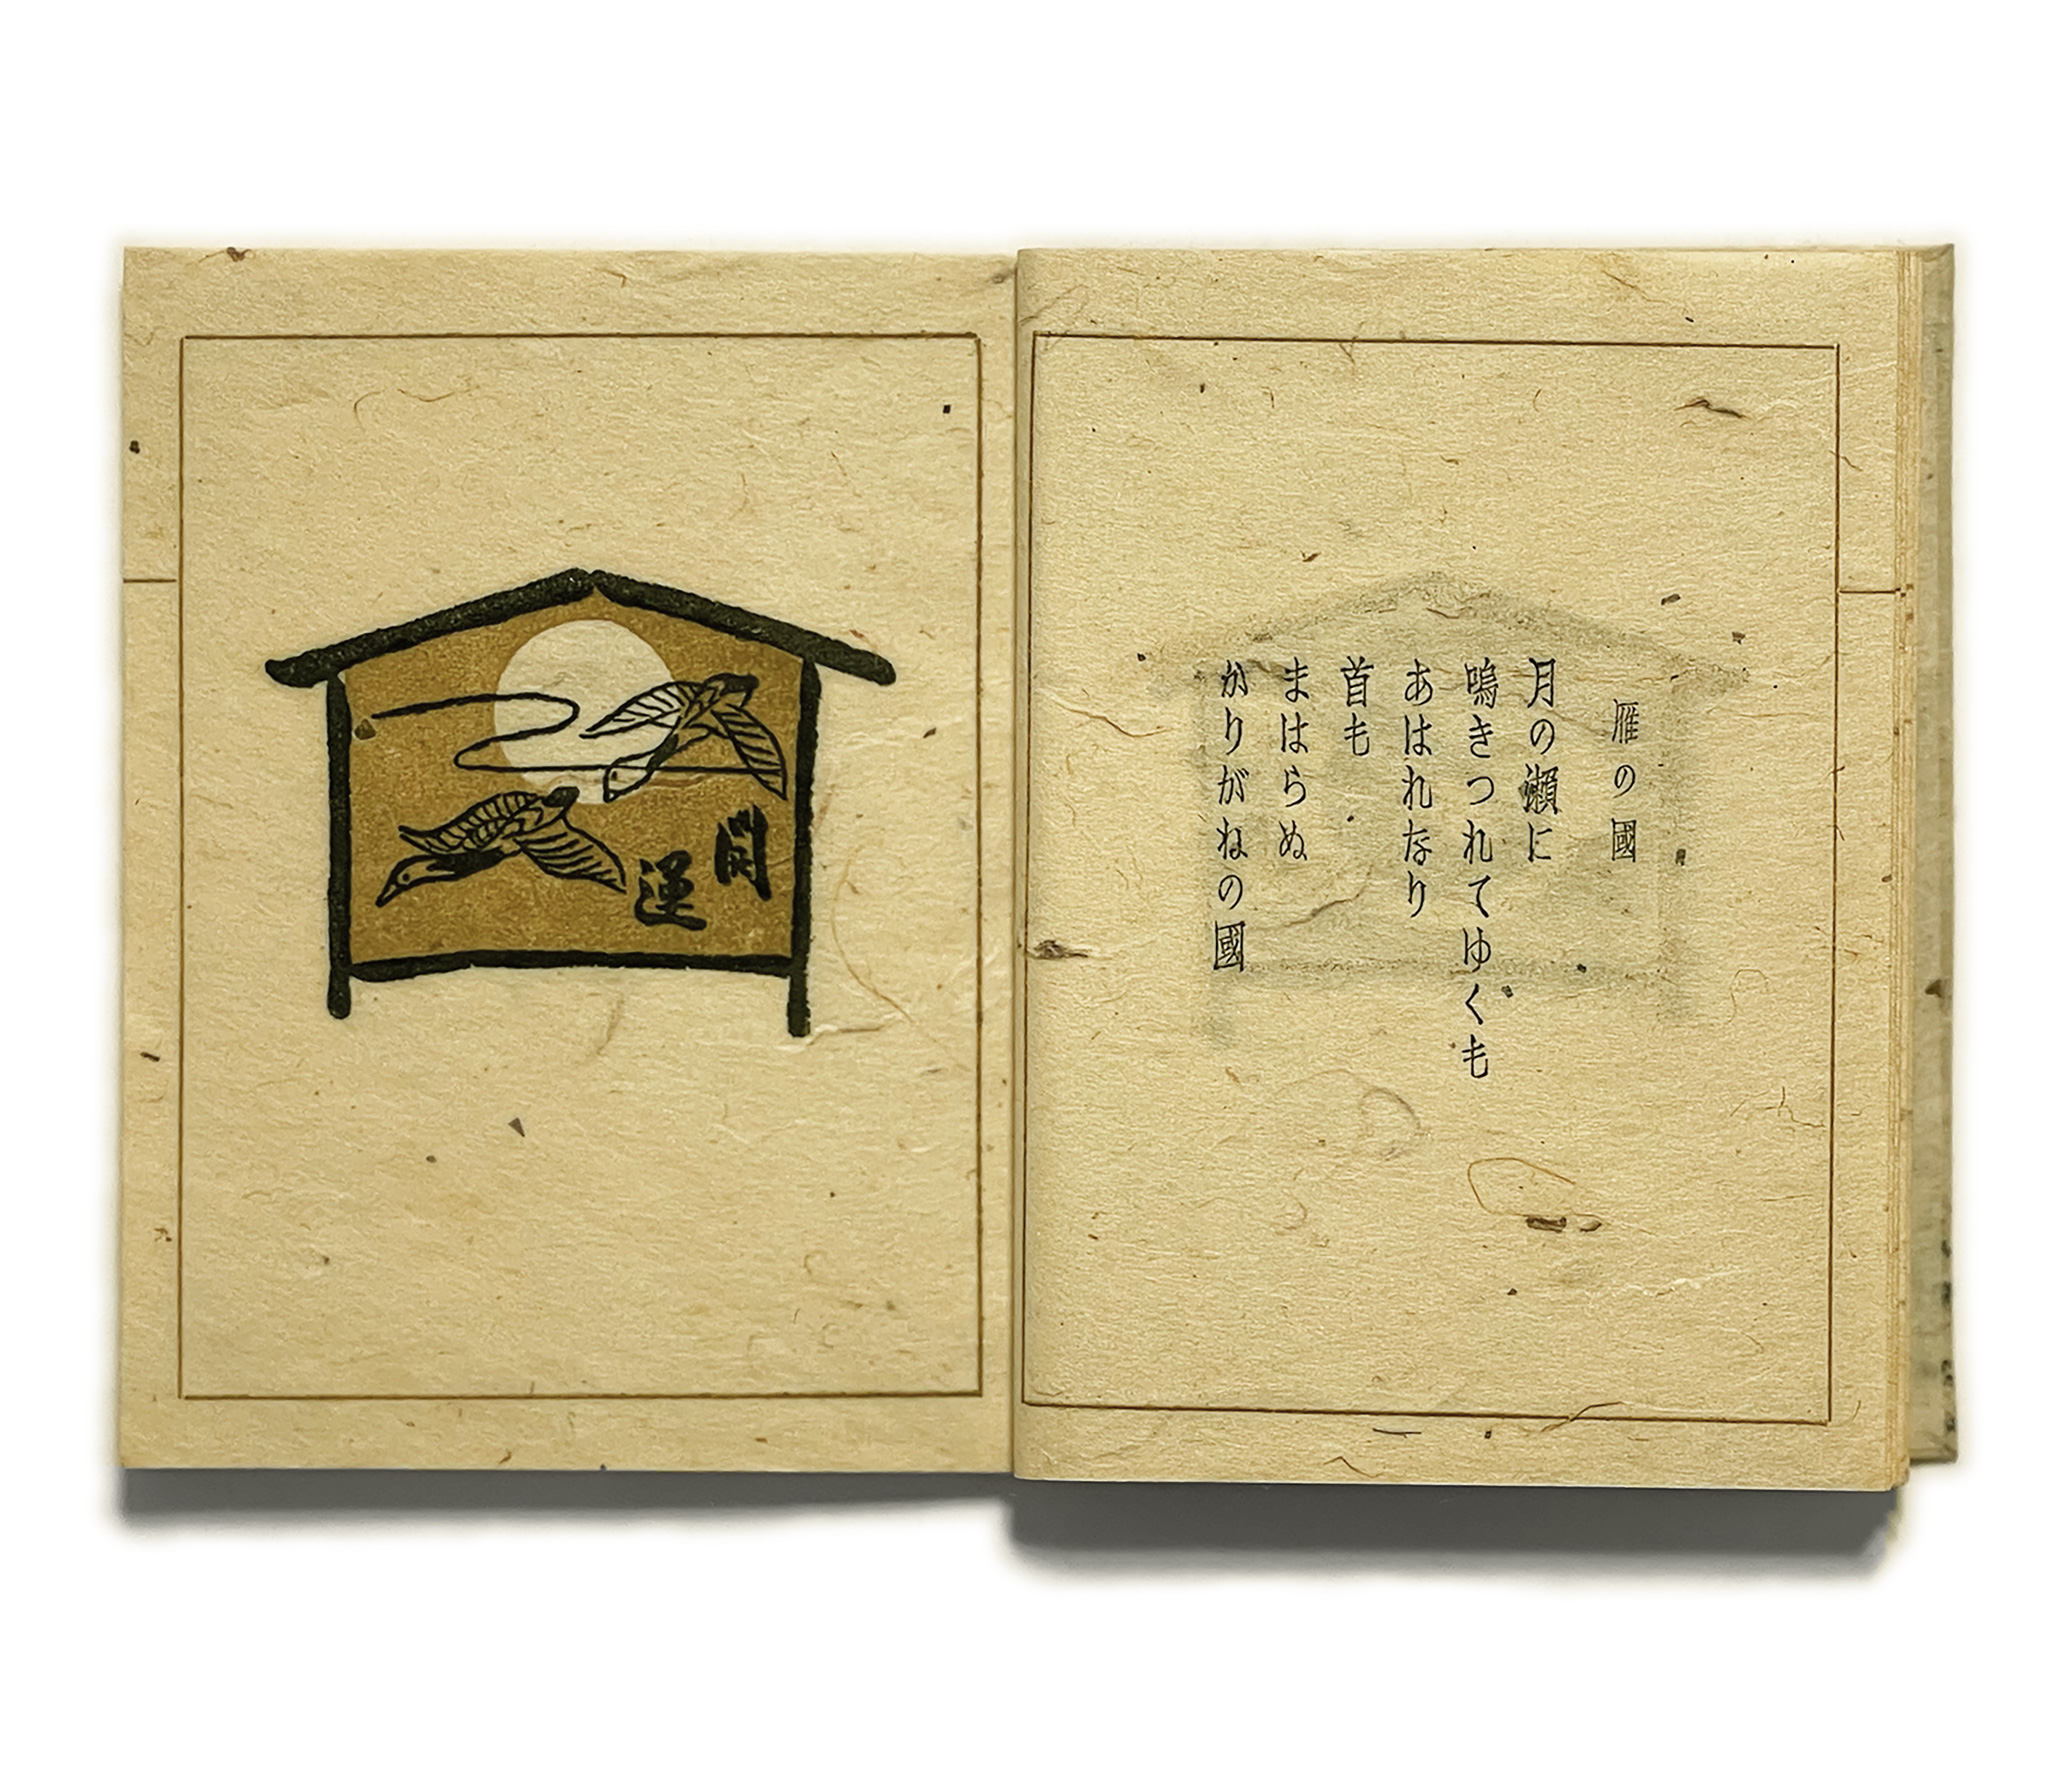 雁の國
月の瀬に
鳴きつれてゆくも
あはれなり
首も
まはらぬ
かりがねの國
開
運